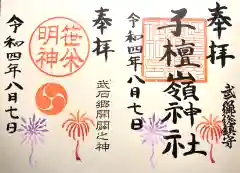 奉拝
子檀嶺神社
令和四年八月七日
奉拝
武石郷開闢之神
明神
令和四年八月七日